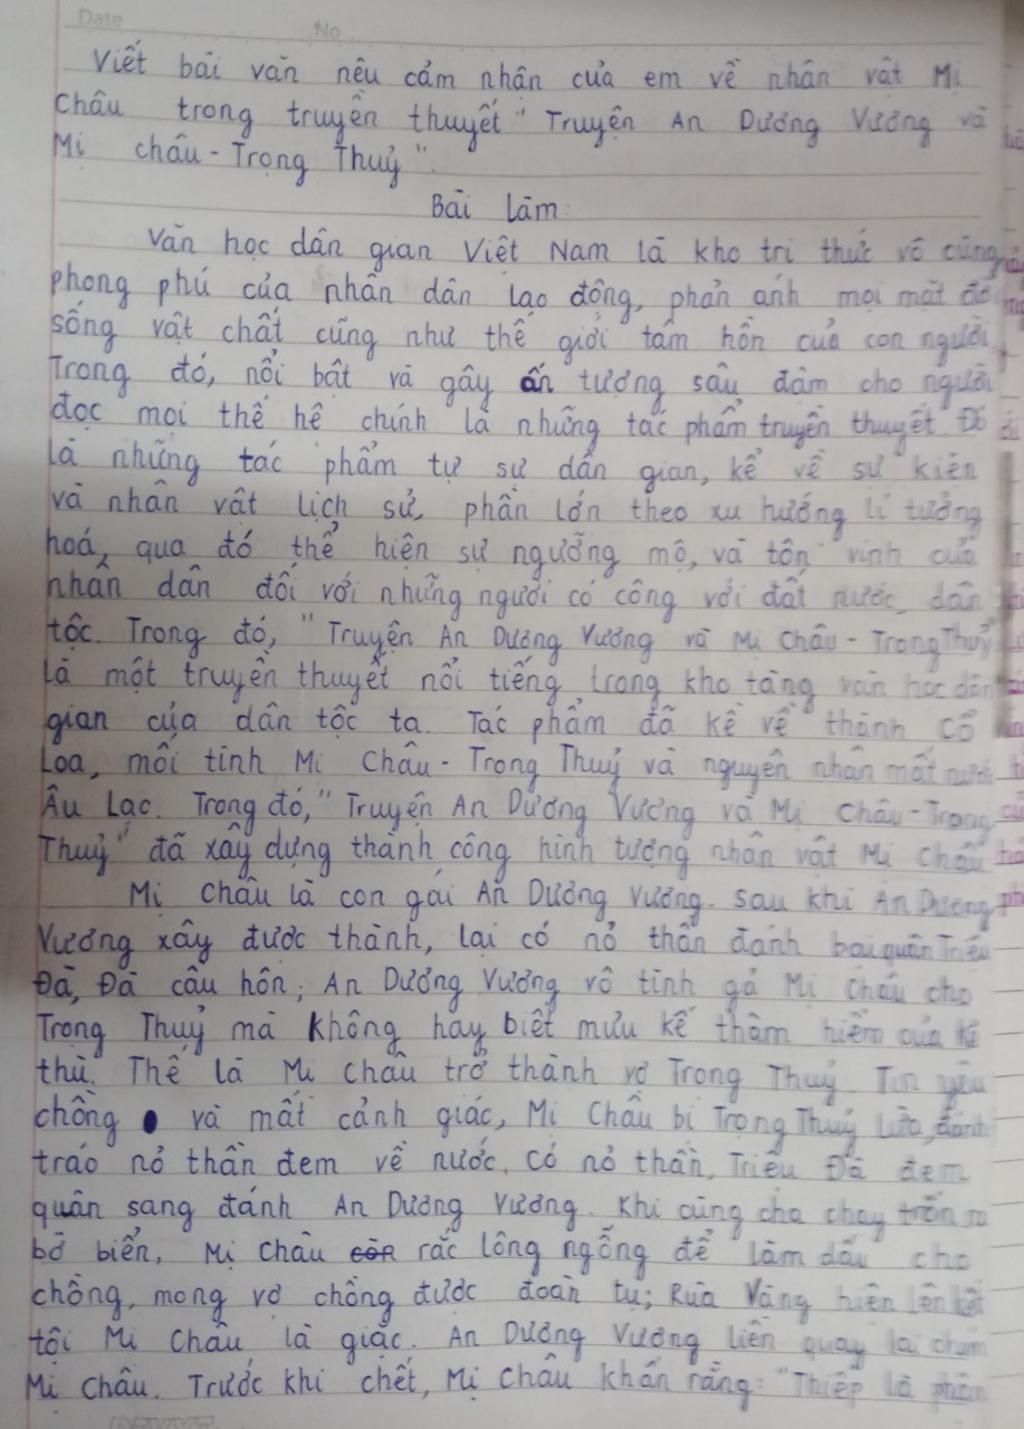 Date No
Viết bài văn nêu cảm nhận của em về nhân vật Mị
Châu trong truyền thuyết "Truyện An Dương Vương và
Mị Châu - Trọng Thuỷ".
Bài làm:
Văn học dân gian Việt Nam là kho tri thức vô cùng
phong phú của nhân dân lao động, phản ánh mọi mặt đời
sống vật chất cũng như thế giới tâm hồn của con người.
Trong đó, nổi bật và gây ấn tượng sâu đậm cho người
đọc mọi thế hệ chính là những tác phẩm truyền thuyết. Đó
là những tác phẩm tự sự dân gian, kể về sự kiện
và nhân vật lịch sử, phần lớn theo xu hướng lí tưởng
hoá, qua đó thể hiện sự ngưỡng mộ, và tôn vinh của
nhân dân đối với những người có công với đất nước, dân
tộc. Trong đó, "Truyện An Dương Vương và Mị Châu - Trọng Thuỷ"
là một truyền thuyết nổi tiếng trong kho tàng văn học dân
gian của dân tộc ta. Tác phẩm đã kể về thành Cổ
Loa, mối tình Mị Châu - Trọng Thuỷ và nguyên nhân mất nước
Âu Lạc. Trong đó, "Truyện An Dương Vương và Mị Châu - Trọng
Thuỷ" đã xây dựng thành công hình tượng nhân vật Mị Châu
Mị Châu là con gái An Dương Vương. Sau khi An Dương
Vương xây được thành, lại có nỏ thần đánh bại quân Triệu
Đà, Đà cầu hôn; An Dương Vương vô tình gả Mị Châu cho
Trọng Thuỷ mà không hay biết mưu kế thâm hiểm của kẻ
thù. Thế là Mị Châu trở thành vợ Trọng Thuỷ. Tin yêu
chồng và mất cảnh giác, Mị Châu bị Trọng Thuỷ lừa, đánh
tráo nỏ thần đem về nước. Có nỏ thần, Triệu Đà đem
quân sang đánh An Dương Vương. Khi cùng cha chạy trốn ra
bờ biển, Mị Châu rắc lông ngỗng để làm dấu cho
chồng, mong vợ chồng được đoàn tụ; Rùa Vàng hiện lên kết
tội Mị Châu là giặc. An Dương Vương liền quay lại chém
Mị Châu. Trước khi chết, Mị Châu khấn rằng: "Thiếp là phận